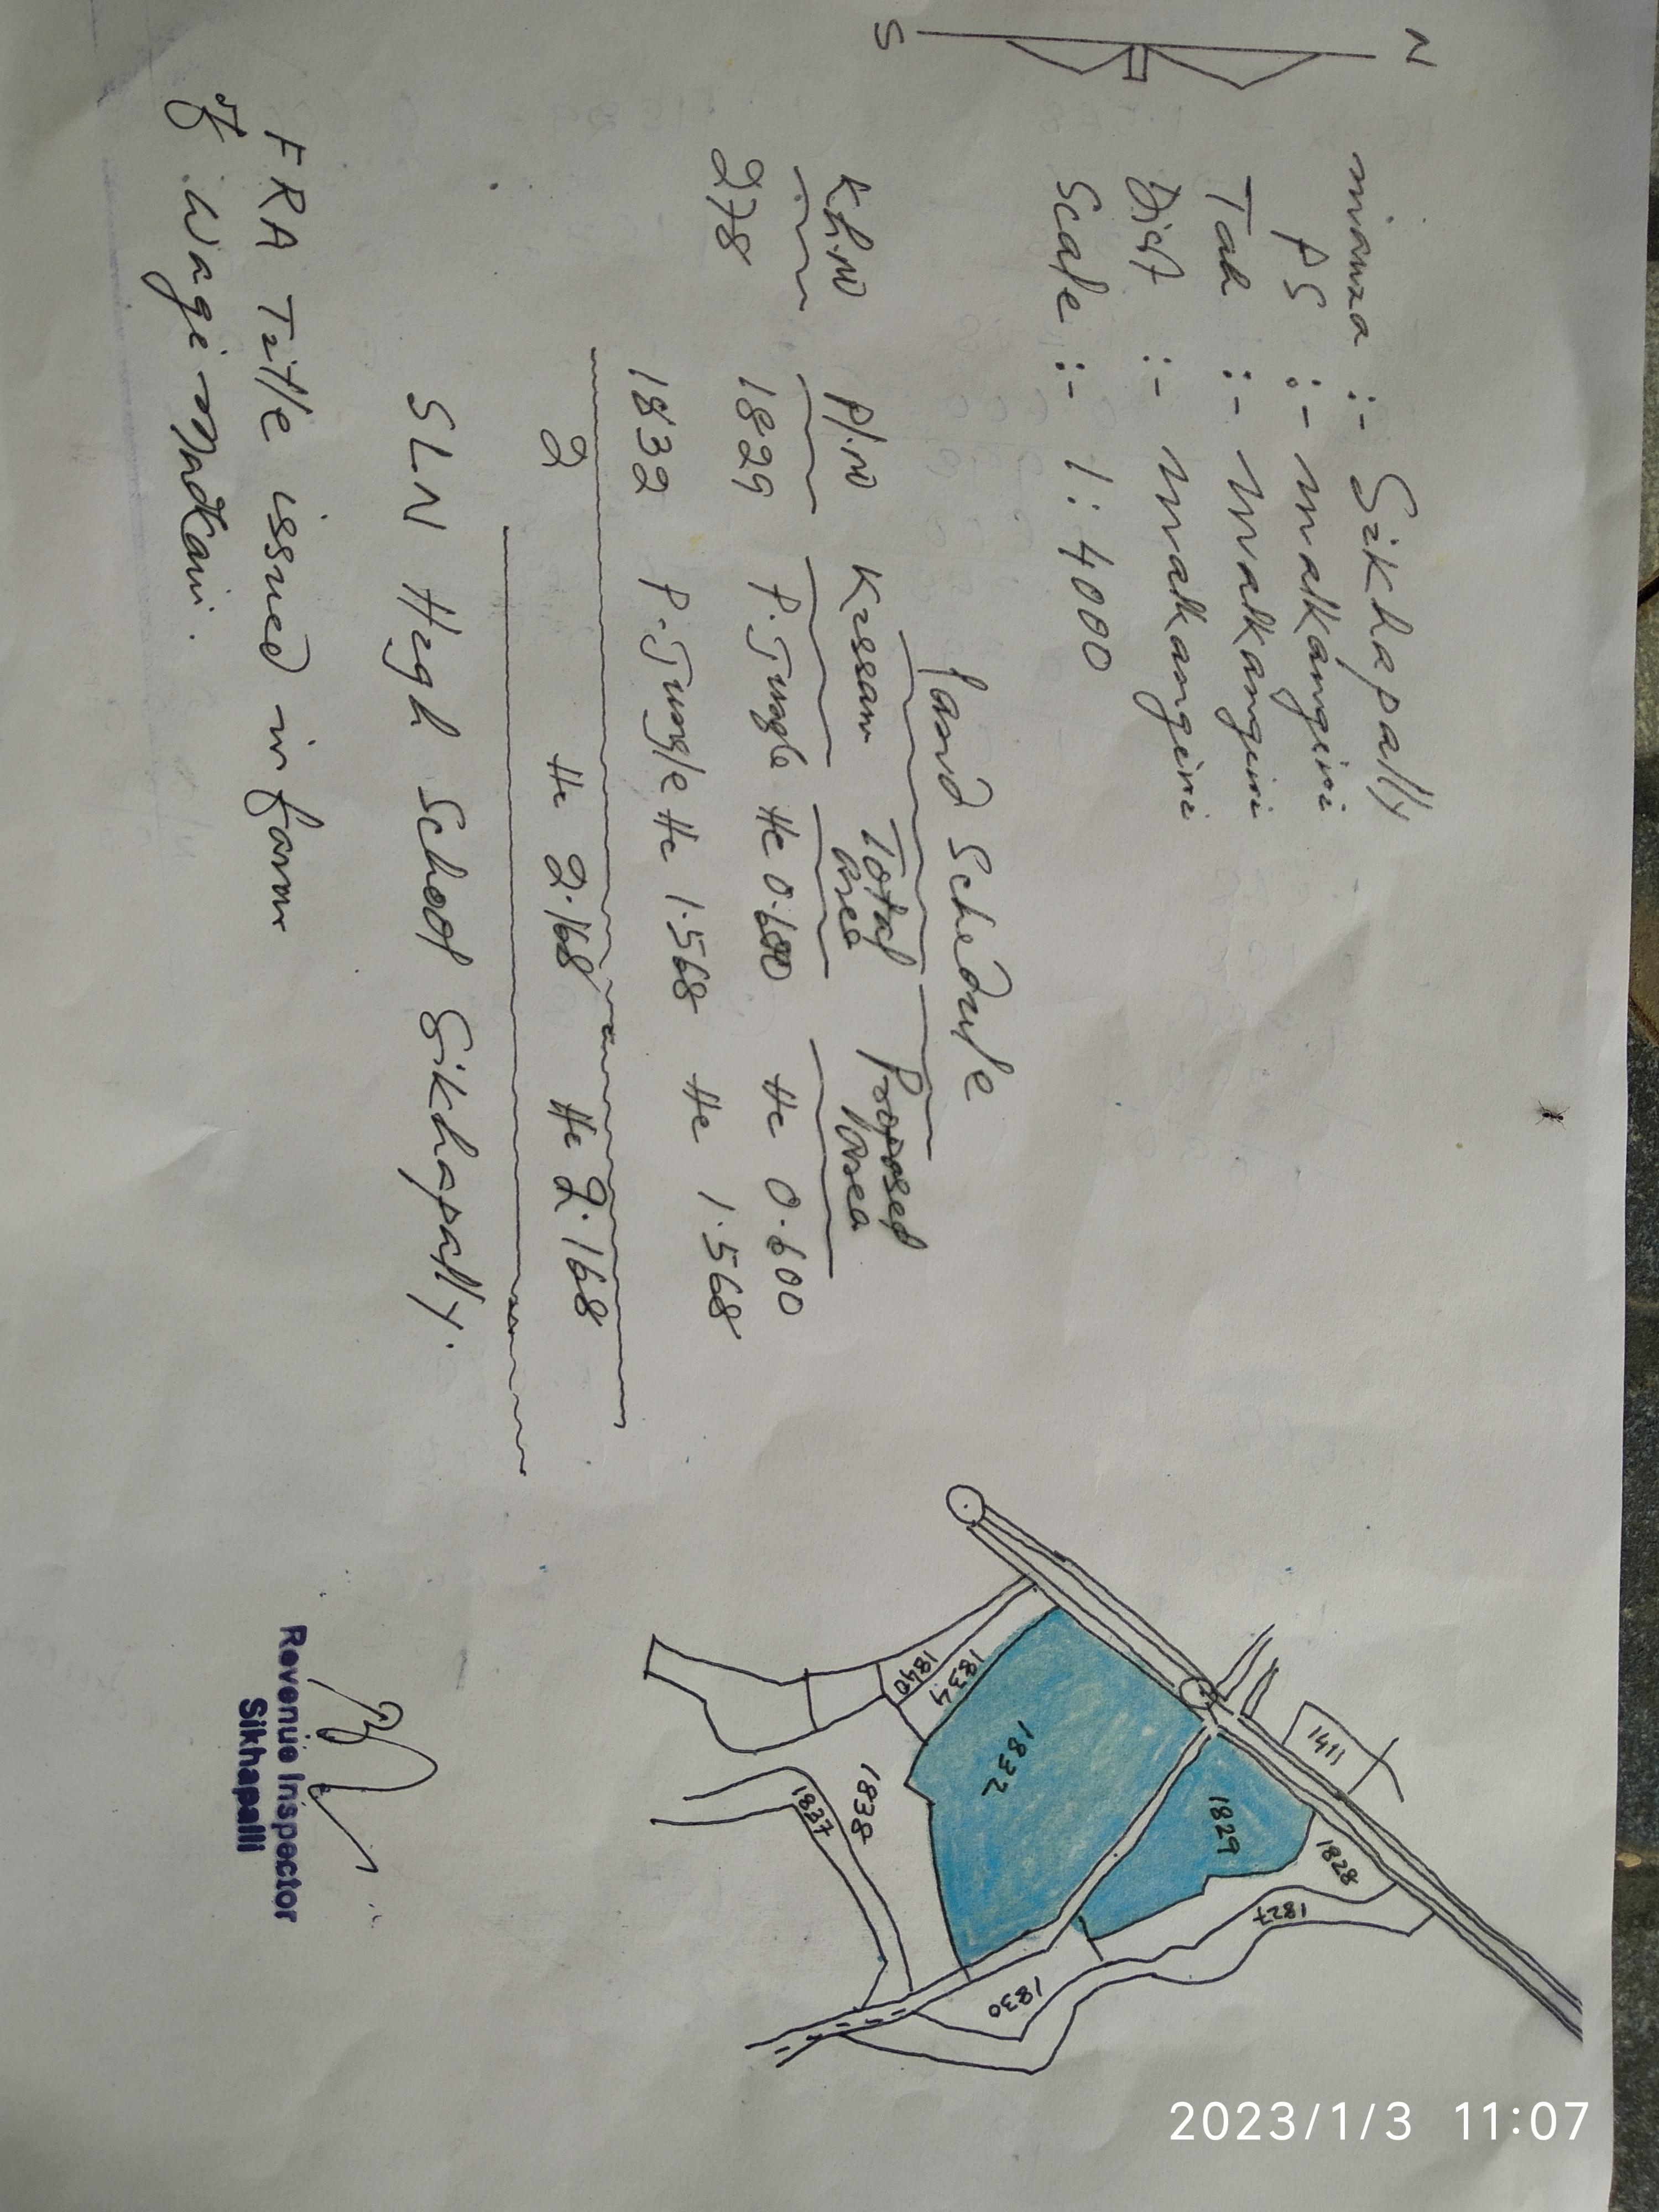 N
S
mouza :- Sikhapally
PS :- malkangiri
Tah :- malkangiri
Dist :- malkangiri
Scale :- 1:4000
Land Schedule
Kh.no Pl.no Kissam Total area Proposed Area
278 1829 P. Jungle Hc 0.600 Hc 0.600
1832 P. Jungle Hc 1.568 Hc 1.568
2 Hc 2.168 Hc 2.168
SLN High School Sikhapally.
FRA Title issued in favour
of Wagi Madkami.
1411
1829
1828
1827
1832
1834
1840
1838
1837
1830
Revenue Inspector
Sikhapalli
2023/1/3 11:07